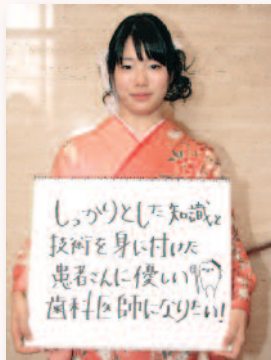 しっかりとした知識と
技術を身に付けた
患者さんに優しい
歯科医師になりたい!